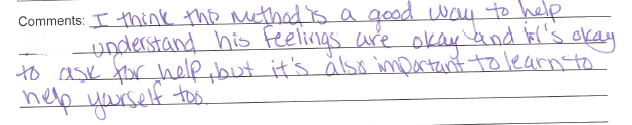 Comments: I think this method is a good way to help
understand his feelings are okay and it's okay
to ask for help, but it's also important to learn to
help yourself too.